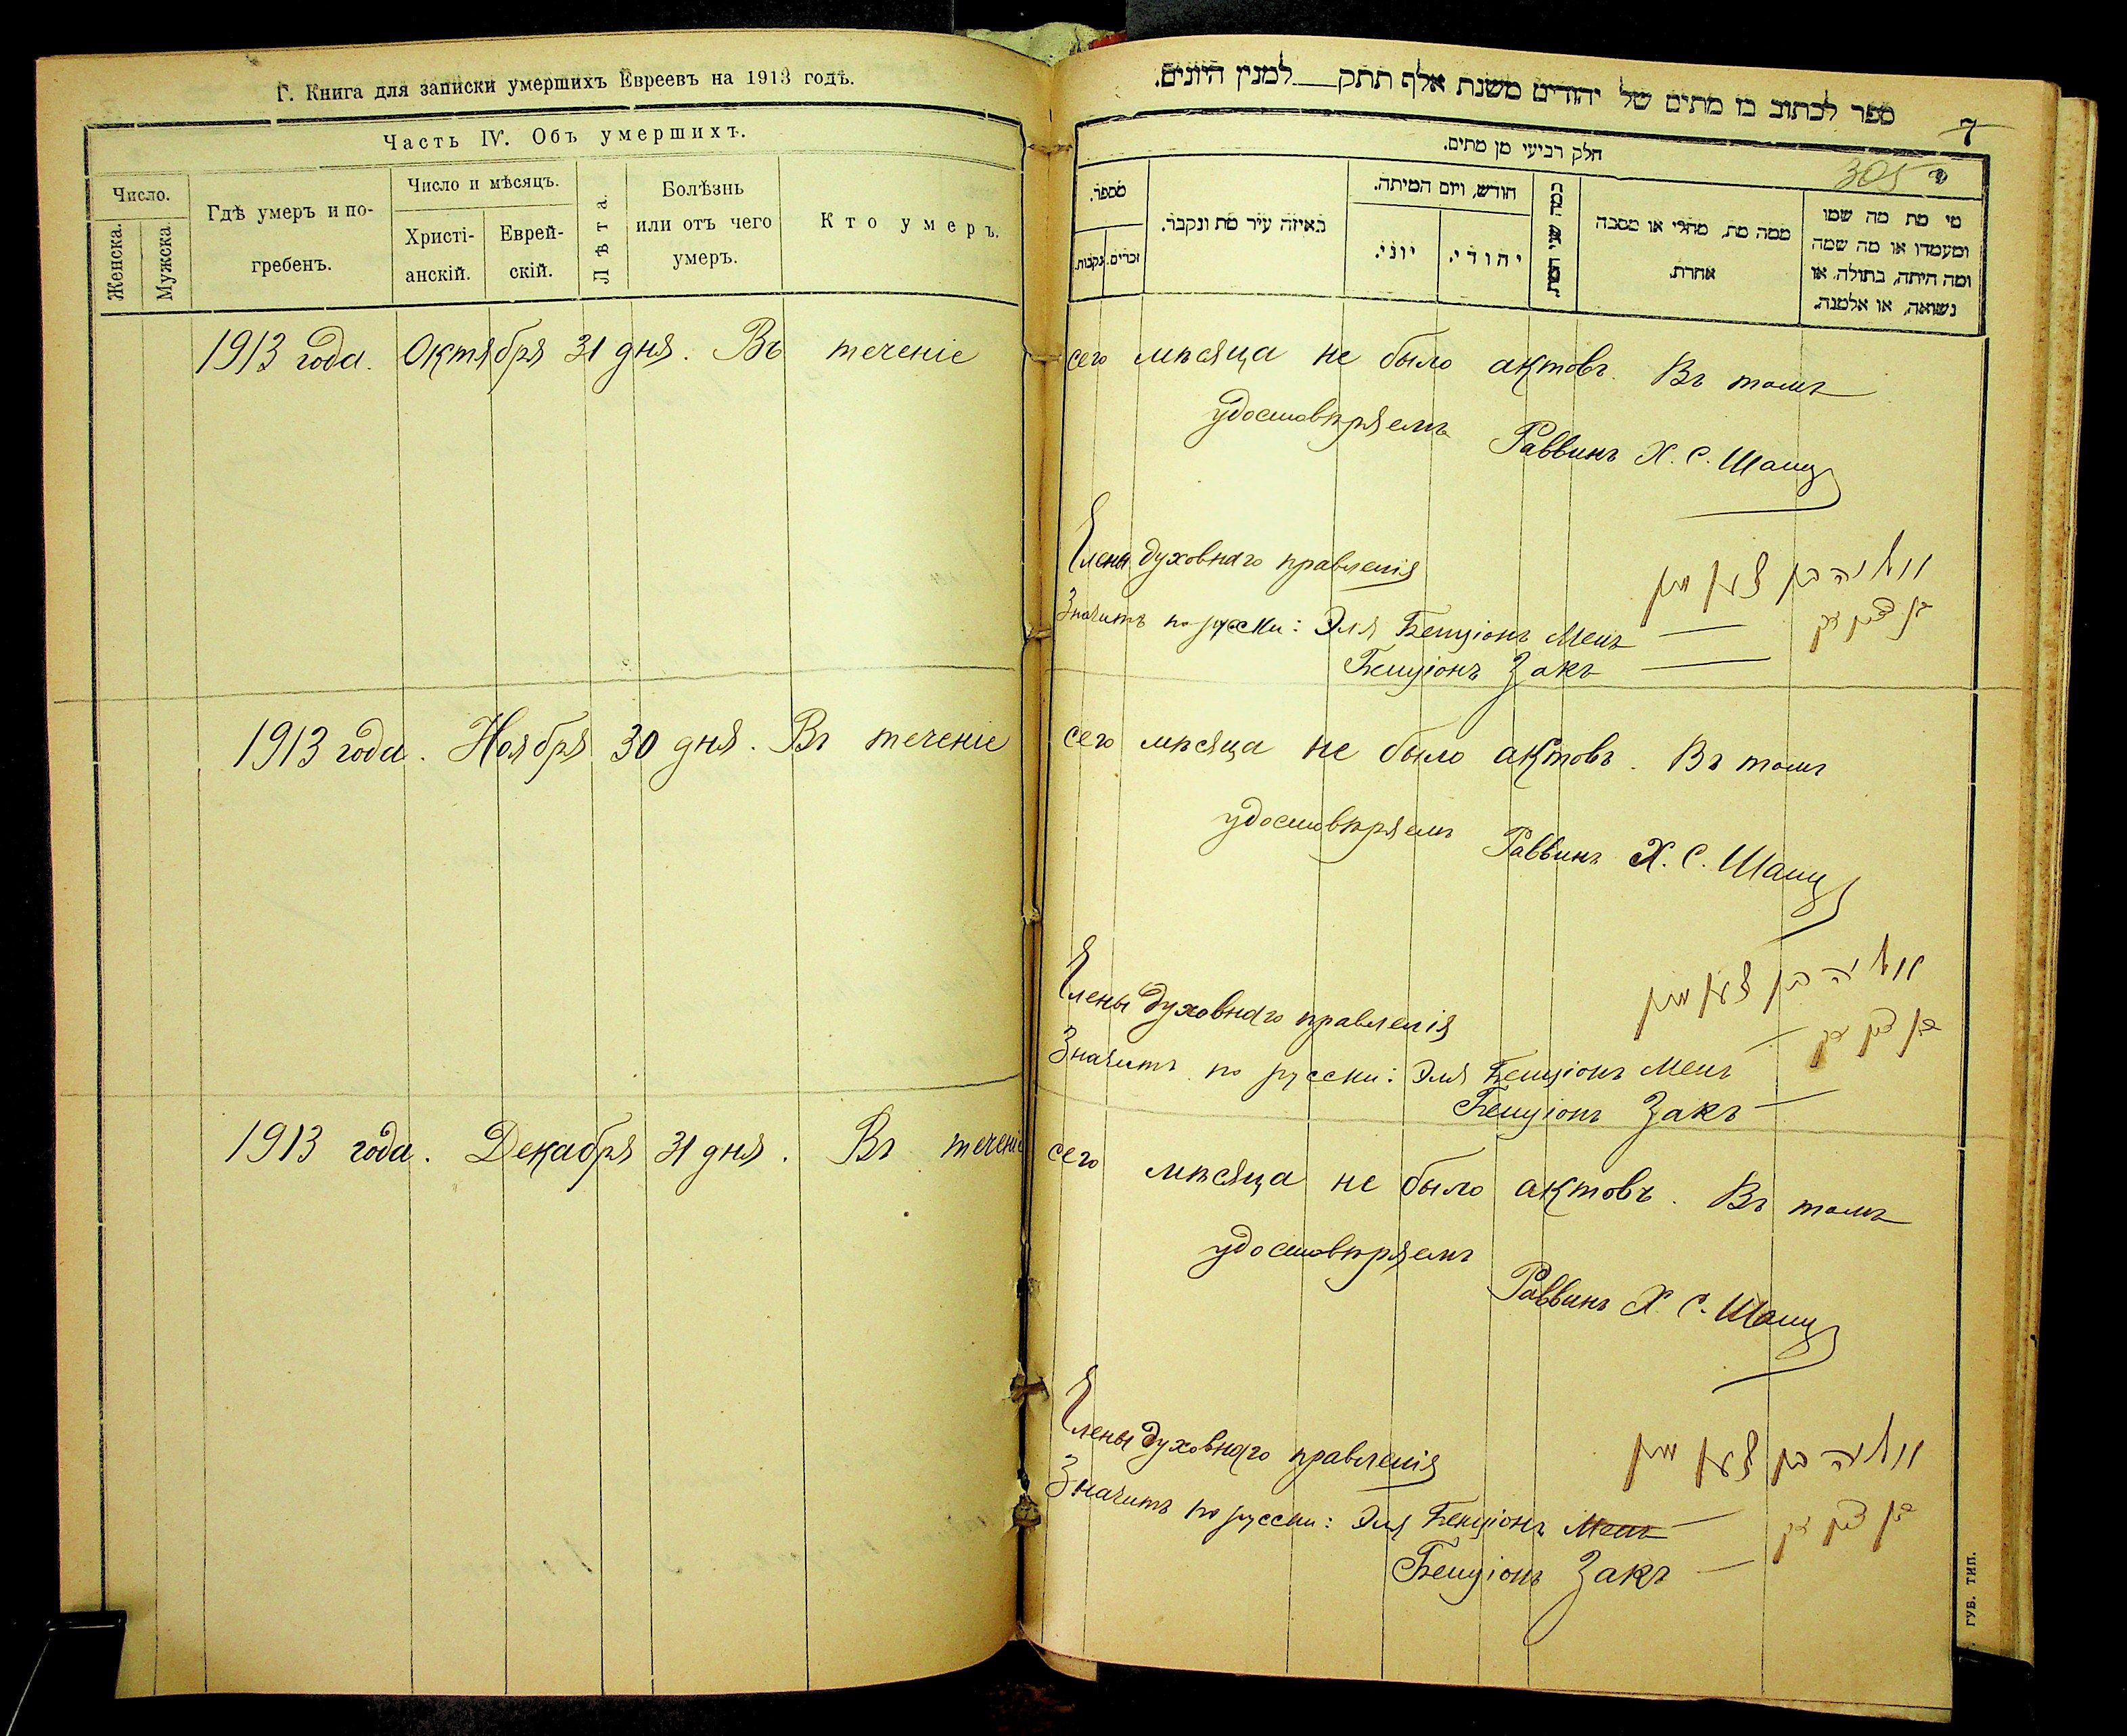 Г. Книга для записки умершихъ Евреевъ на 1913 годъ.
Часть IV. Объ умершихъ.
Число.
Женска.
Мужска.
Гдѣ умеръ и по-
гребенъ.
Число и мѣсяцъ.
Христі-
анскій.
Еврей-
скій.
Лѣта.
Болѣзнь
или отъ чего
умеръ.
Кто умеръ.
ספר לכתוב בו מתים של יהודים משנת אלף תתק למנין היונים.
7
305
חלק רביעי מן מתים.
מספר.
זכרים.
נקבות.
באיזה עיר מת ונקבר.
חודש, ויום המיתה.
יוני.
יהודי.
כמה שני המת.
ממה מת, מחלי או מסבה
אחרת.
מי מת מה שמו
ומעמדו או מה שמה
ומה היתה, בתולה, או
נשואה, או אלמנה.
1913 года. Октября 31 дня. Въ теченіе сего мѣсяца не было актовъ. Въ томъ
удостовѣряемъ Раввинъ Х. С. Шацъ
Члены духовнаго правленія
Значитъ по русски: Эля Бенціонъ Менъ
בן ציון זק
Бенціонъ Закъ
1913 года. Ноября 30 дня. Въ теченіе сего мѣсяца не было актовъ. Въ томъ
удостовѣряемъ Раввинъ Х. С. Шацъ
Члены духовнаго правленія
Значитъ по русски: Эля Бенціонъ Менъ
בן ציון זק
Бенціонъ Закъ
1913 года. Декабря 31 дня. Въ теченіе сего мѣсяца не было актовъ. Въ томъ
удостовѣряемъ
Раввинъ Х. С. Шацъ
Члены духовнаго правленія
Значитъ по русски: Эля Бенціонъ Менъ
בן ציון זק
Бенціонъ Закъ
ГУБ. ТИП.